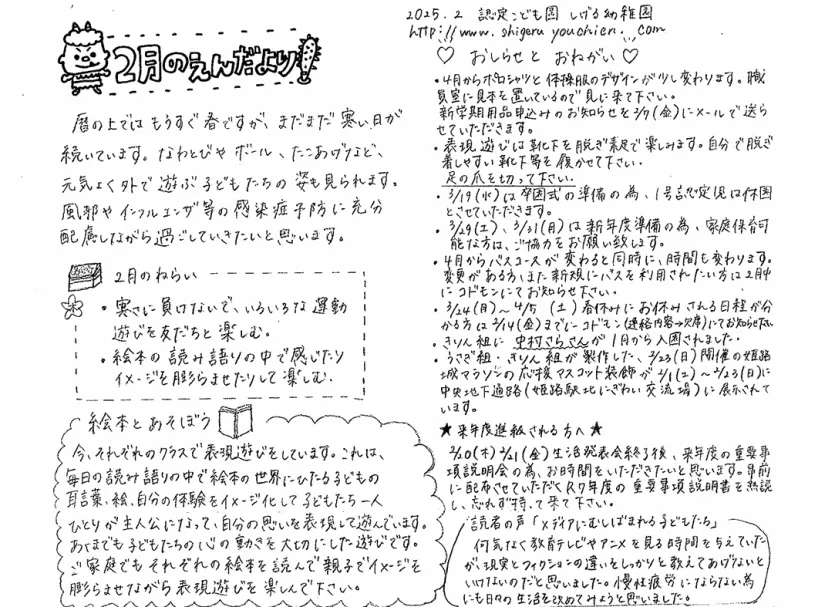 2月のえんだより
暦の上ではもうすぐ春ですが、まだまだ寒い日が
続いています。なわとびやボール、たこあげなど、
元気よく外で遊ぶ子どもたちの姿も見られます。
風邪やインフルエンザ等の感染症予防に充分
配慮しながら過ごしていきたいと思います。
2月のねらい
・寒さに負けないで、いろいろな運動
遊びを友だちと楽しむ。
・絵本の読み語りの中で感じたり
イメージを膨らませたりして楽しむ。
絵本とあそぼう
今、それぞれのクラスで表現遊びをしています。これは、
毎日の読み語りの中で絵本の世界にひたる子どもの
言葉、絵、自分の体験をイメージ化して子どもたち一人
ひとりが主人公になって、自分の思いを表現して遊んでいます。
あくまでも子どもたちの心の動きを大切にした遊びです。
ご家庭でもそれぞれの絵本を読んで親子でイメージを
膨らませながら表現遊びを楽しんで下さい。
2025.2 認定こども園 しげる幼稚園
http://www.shigeru youchien.com
♡ おしらせと おねがい ♡
・4月からポロシャツと体操服のデザインが少し変わります。職
員室に見本を置いているので見に来て下さい。
新学期用品申込みのお知らせを2/7(金)にメールで送ら
せていただきます。
・表現遊びは靴下を脱ぎ素足で楽しみます。自分で脱ぎ
着しやすい靴下等を履かせて下さい。
足の爪を切って下さい。
・3/19(水)は卒園式の準備の為、1号認定児は休園
とさせていただきます。
・3/29(土)、3/31(月)は新年度準備の為、家庭保育可
能な方は、ご協力をお願い致します。
・4月からバスコースが変わると同時に、時間も変わります。
変更がある方、また新規にバスを利用されたい方は2月中
にコドモンにてお知らせ下さい。
・3/24(月)～4/5(土)春休みにお休みされる日程が分
かる方は2/14(金)までにコドモン(連絡内容→欠席)にてお知らせ下さい
・きりん組に 中村さらさんが1月から入園されました。
・うさぎ組・きりん組が製作した、2/23(日)開催の姫路
城マラソンの応援マスコット装飾が2/1(土)～2/23(日)に
中央地下通路(姫路駅北にぎわい交流場)に展示されて
います。
★来年度進級される方へ★
2/20(木) 2/21(金)生活発表会終了後、来年度の重要事
項説明会の為、お時間をいただきたいと思います。事前
に配布させていただくR7年度の重要事項説明書を熟読
し、忘れず持って来て下さい。
読者の声「メディアにむしばまれる子どもたち」
何気なく教育テレビやアニメを見る時間を与えていた
が、現実とフィクションの違いをしっかりと教えてあげないと
いけないのだと思いました。慢性疲労にならない為
にも日々の生活を改めてみようと思いました。